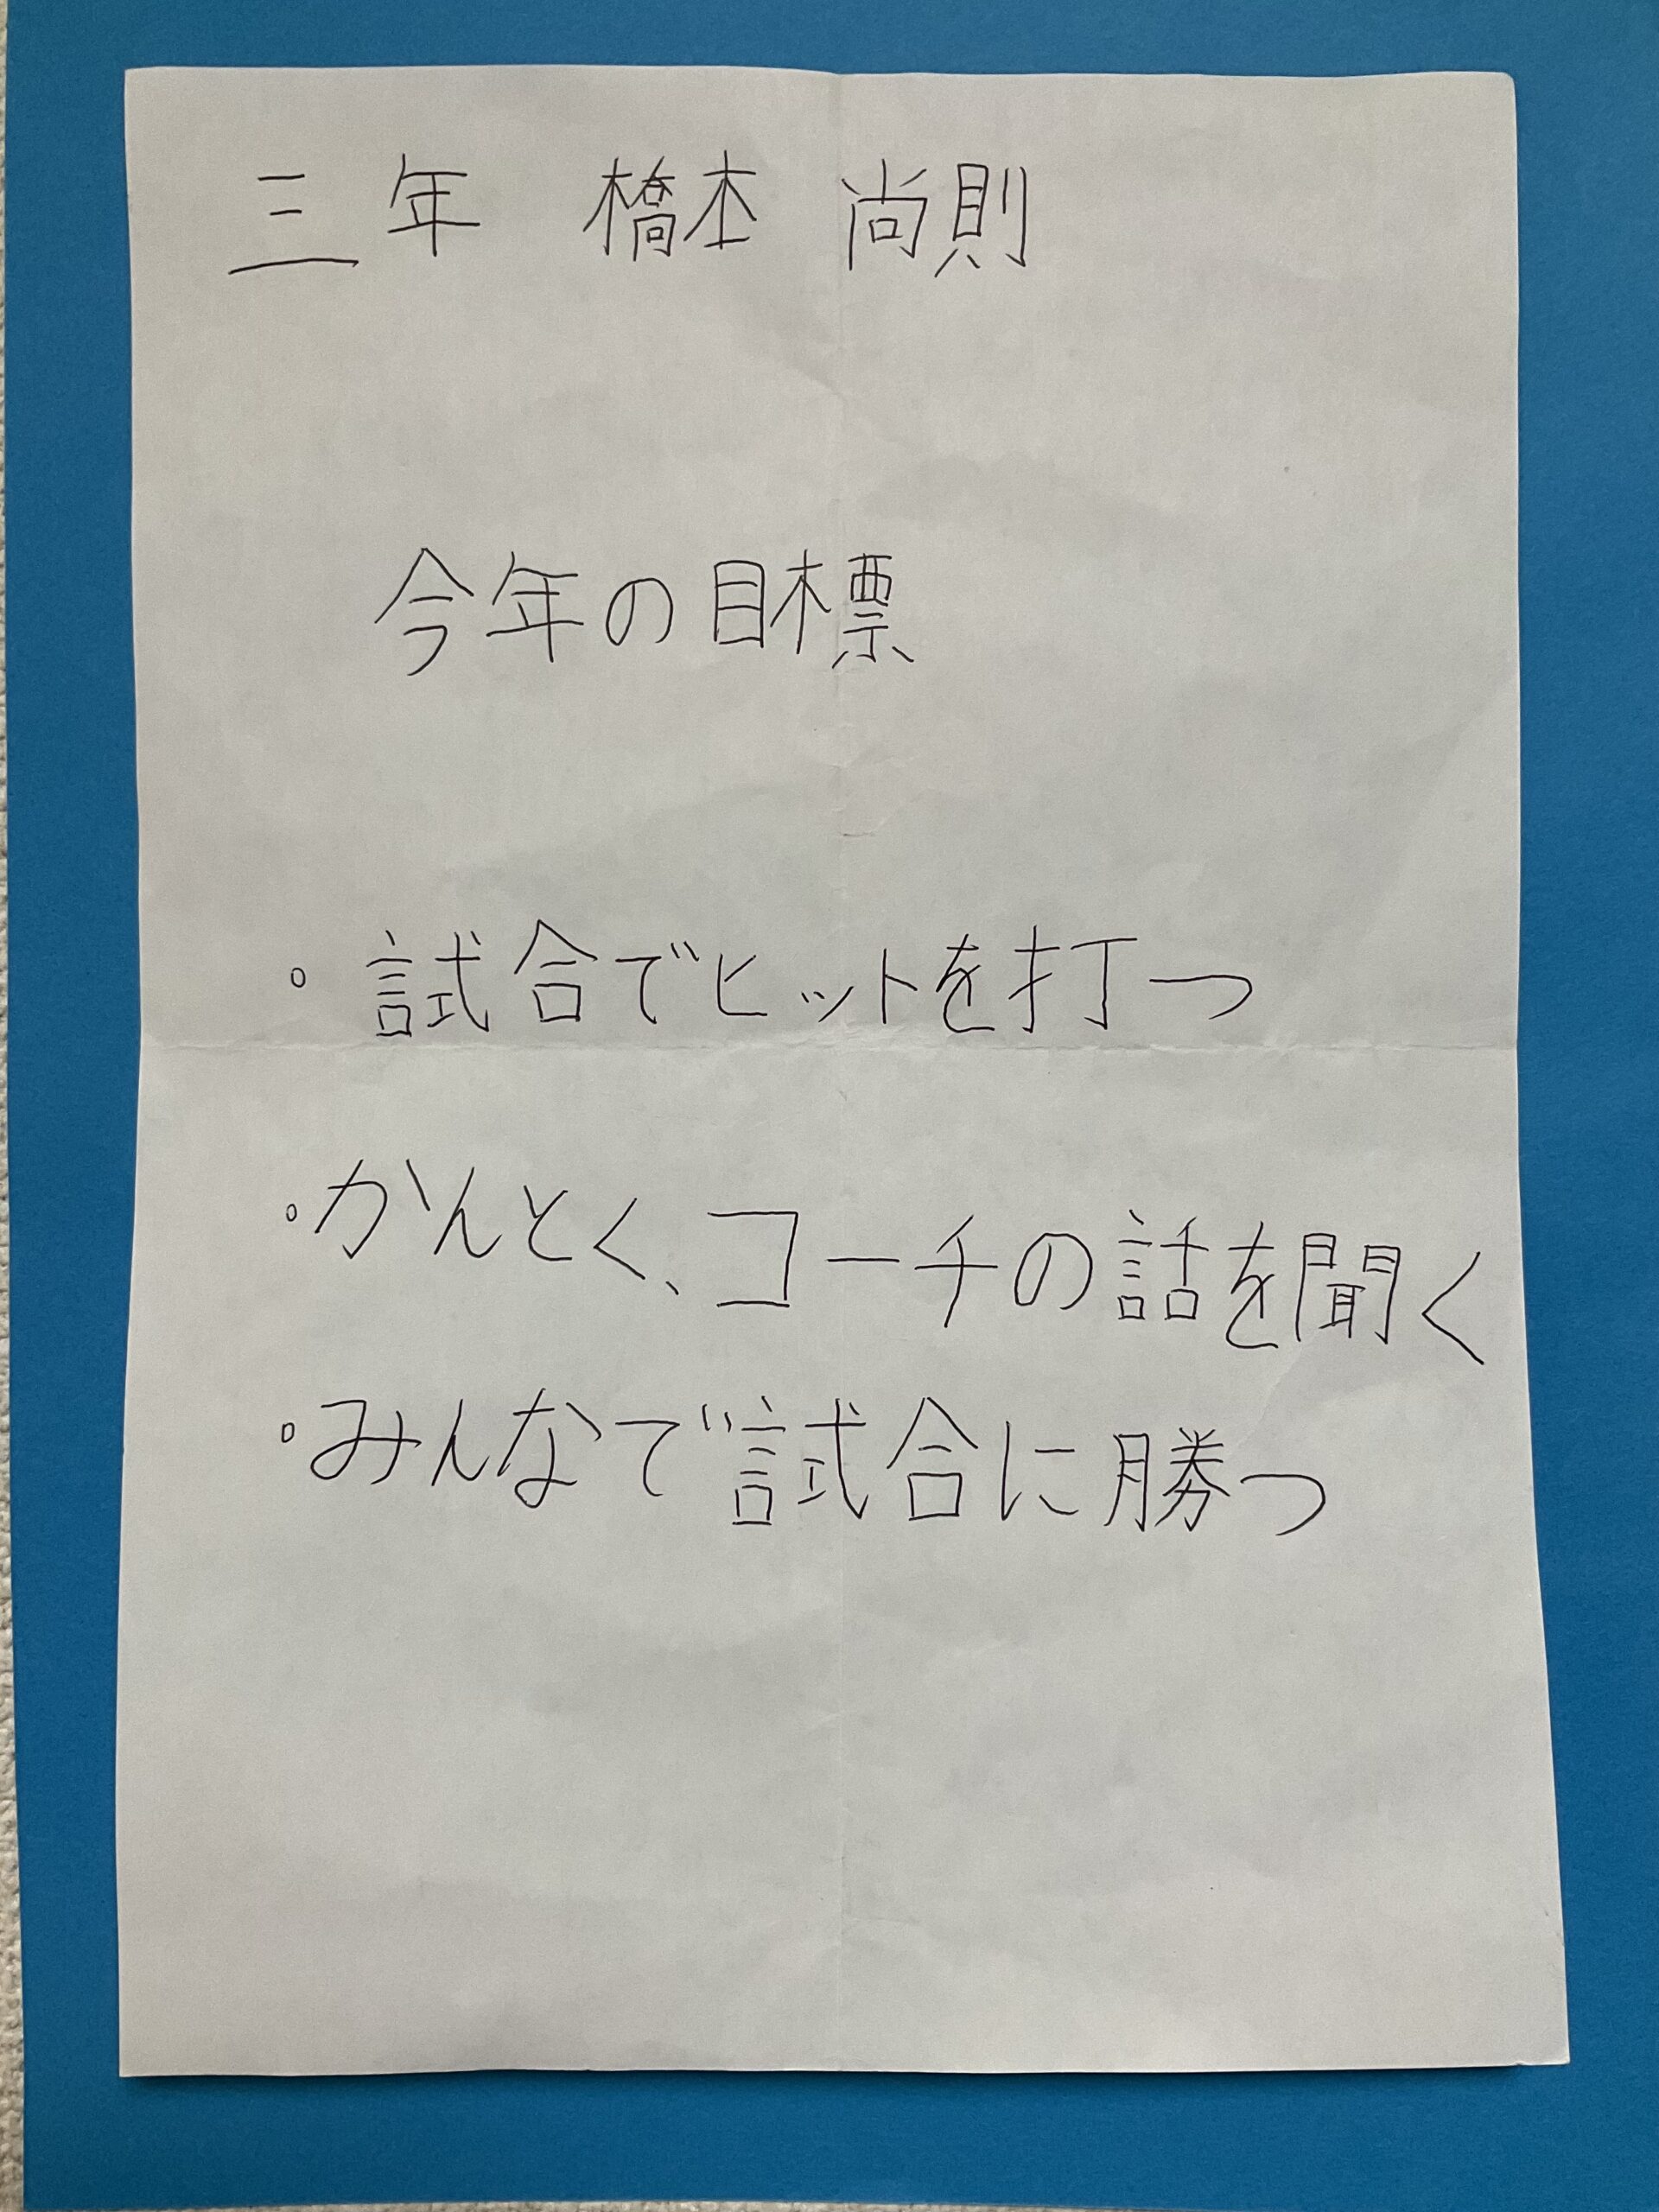 三年 橋本 尚則
今年の目標
・試合でヒットを打つ
・かんとく、コーチの話を聞く
・みんなで試合に勝つ